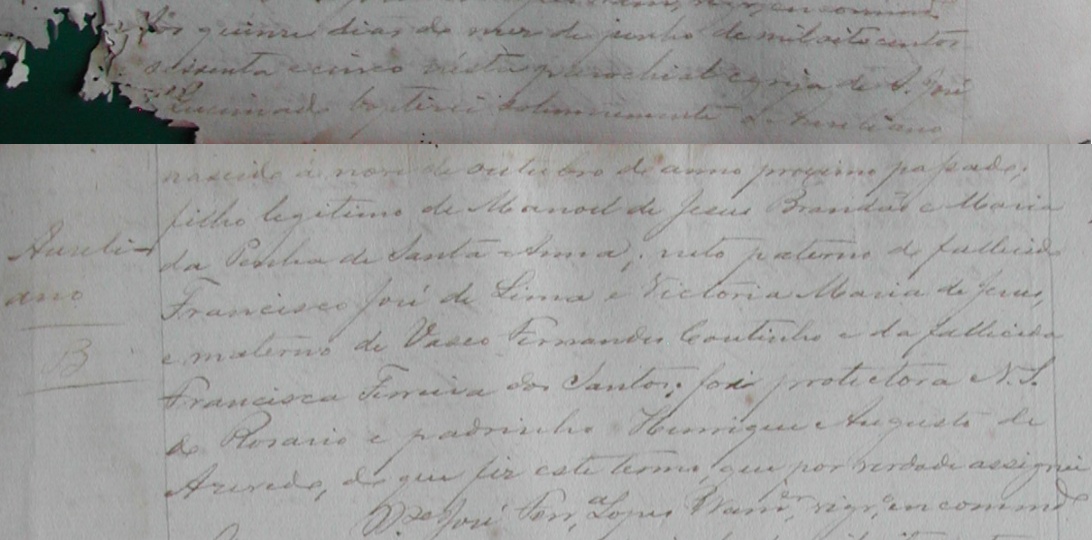 vigr.º encommd.º
Aos quinze dias do mez de junho de mil oito centos
sessenta e cinco nésta parochial egreja de S. José
Queimado baptisei solemnemente a Aureliano
nascido á nove de outubro do anno proximo passado;
filho legitimo de Manoel de Jesus Brandão e Maria
Aureli=
da Penha de Santa Anna; neto paterno do fallecido
ano
Francisco José de Lima e Victoria Maria de Jesus,
e materno de Vasco Fernandes Coutinho e da fallecida
B
Francisca Ferreira dos Santos; foi protectora N. S.
do Rosario e padrinho Henrique Augusto de
Azeredo, do que fiz este termo, que por verdade assignei
Pe. José Ferr.ª Lopes Wand.er vigr.º encommd.º